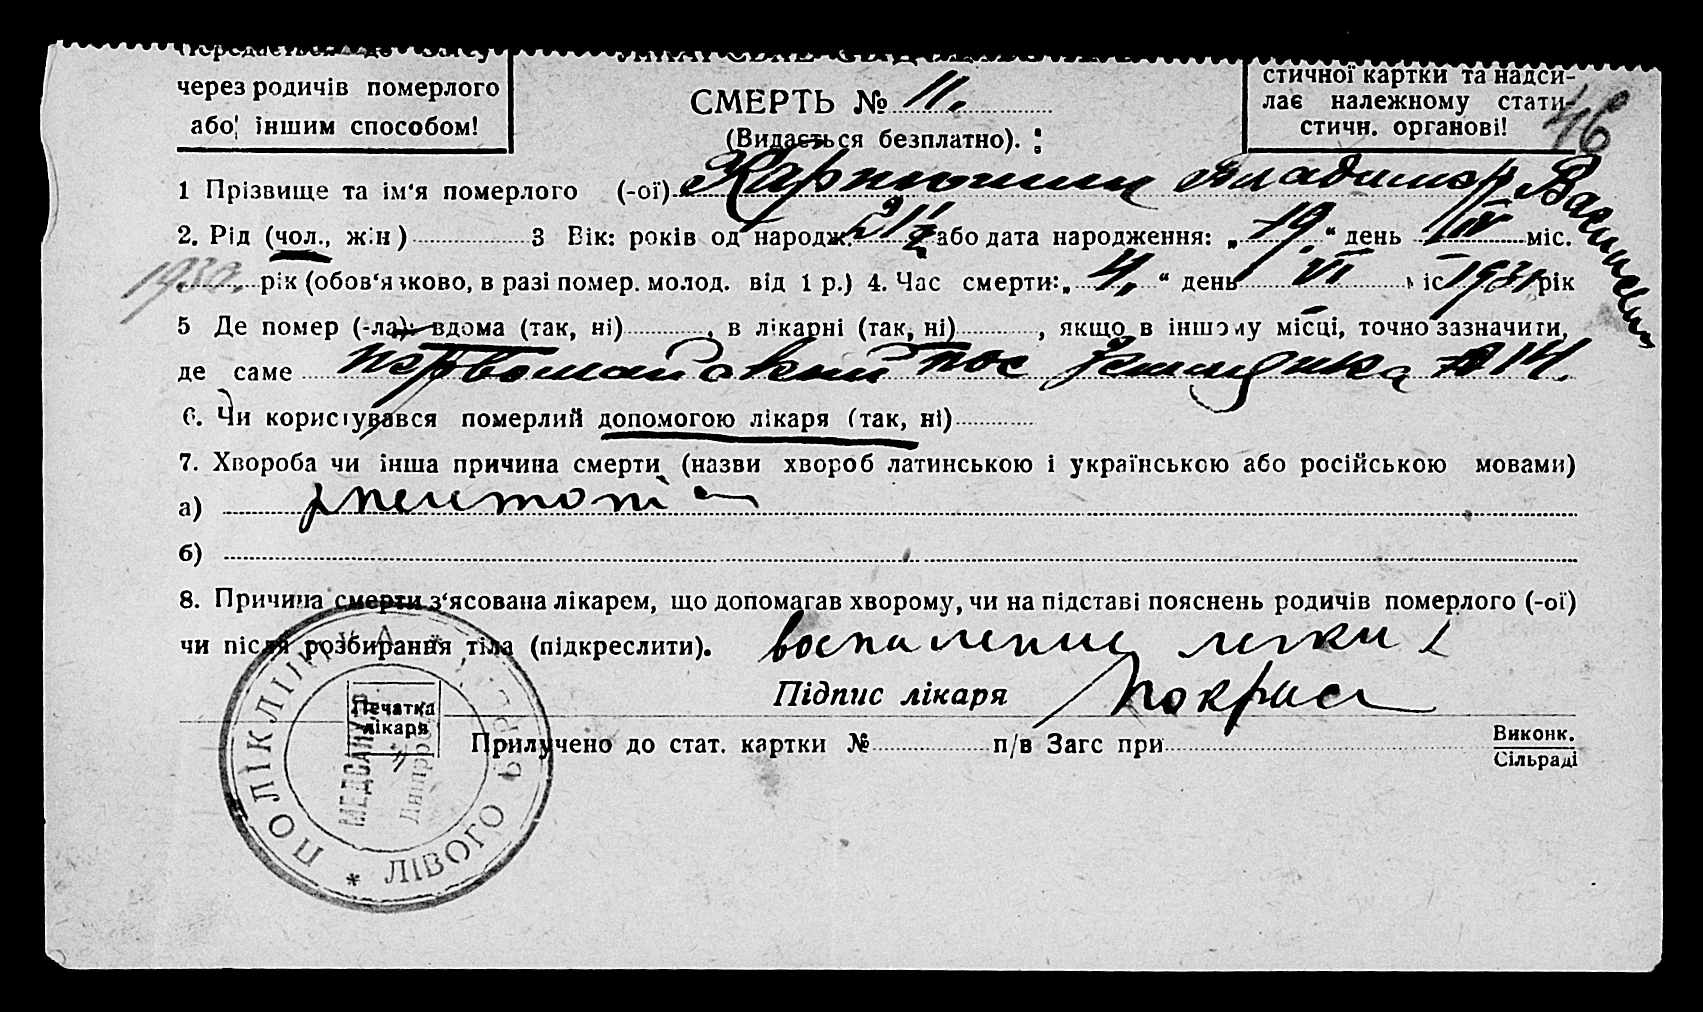 Передається до Загсу
через родичів померлого
або іншим способом!
СМЕРТЬ № 11.
(Видається безплатно).
стичної картки та надси-
лає належному стати-
стичн. органові!
46
1 Прізвище та ім'я померлого (-ої) Владимир Васильевич
2. Рід (чол., жін) 3 Вік: років од народж. або дата народження: „19.“ день IV міс.
1930. рік (обов'язково, в разі помер. молод. від 1 р.) 4. Час смерти: „4.“ день VI міс 1931 рік
5 Де помер (-ла): вдома (так, ні), в лікарні (так, ні), якщо в іншому місці, точно зазначити,
де саме Первомайский пос №14.
6. Чи користувався померлий допомогою лікаря (так, ні)
7. Хвороба чи інша причина смерти (назви хвороб латинською і українською або російською мовами)
а) pneumonia
б)
8. Причина смерти з'ясована лікарем, що допомагав хворому, чи на підставі пояснень родичів померлого (-ої)
чи після розбирання тіла (підкреслити). воспаление легких
Підпис лікаря
Печатка
лікаря
Прилучено до стат. картки № п/в Загс при Виконк.
Сільраді
ПОЛІКЛІНІКА
ЛІВОГО